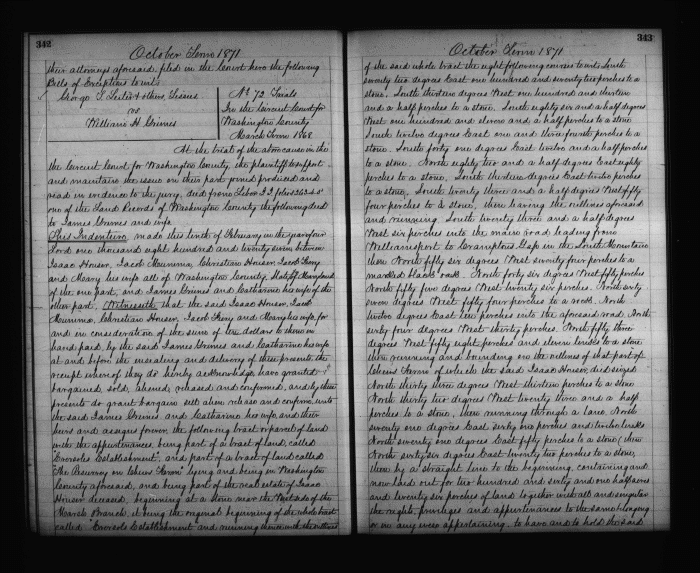 342
October Term 1871
their attorneys aforesaid, filed in the Court here the following
Bills of Exceptions to wit:
George S. & others, Lessees
vs
William H Grimes
No 72 Trials
In the Circuit Court for
Washington County
March Term 1868
At the trial of the above cause in the
the Circuit Court for Washington County, the plaintiff to support
and maintain the issue on their part joined produced and
read in evidence to the jury, deed from Liber II folios
one of the Land Records of Washington County the following deed
to James Grimes and wife
This Indenture, made this tenth of February in the year of our
Lord one thousand eight hundred and twenty seven between
Isaac Houser, Jacob Mumma, Christian Houser, Jacob Fiery
and Mary his wife all of Washington County State of Maryland
of the one part, and James Grimes and Catharine his wife of the
other part, Witnesseth that the said Isaac Houser, Jacob
Mumma, Christian Houser, Jacob Fiery and Mary his wife, for
and in consideration of the sum of ten dollars to them in
hand paid by the said James Grimes and Catharine his wife
at and before the ensealing and delivery of these presents the
receipt whereof they do hereby acknowledge, have granted &
bargained, sold, aliened, released and confirmed, and by these
presents do grant bargain sell alien release and confirm, unto
the said James Grimes, and Catharine his wife, and their
heirs and assigns forever, the following tract or parcel of land
with the appurtenances, being part of a tract of land, called
"Eversoles Establishment", and part of a tract of land called
"The Resurvey on Farm" lying and being in Washington
County aforesaid, and being part of the real estate of Isaac
Houser deceased, beginning at a stone near the West side of the
Marsh Branch, it being the original beginning of the whole tract
called "Eversole Establishment and running thence with the outlines
343
October Term 1871
of the said whole tract the eight following courses to wit, South
seventy two degrees East one hundred and seventy two perches to a
stone, South thirteen degrees West one hundred and thirteen
and a half perches to a stone, South eighty six and a half degrees
West one hundred and eleven and a half perches to a stone
South twelve degrees East one and three fourth perches to a
stone. South forty one degrees East twelve and a half perches
to a stone. North eighty two and a half degrees East eighty
perches to a stone. South thirteen degrees East twelve perches
to a stone, South twenty three and a half degrees West fifty
four perches to a stone, then leaving the outlines aforesaid
and running South twenty three and a half degrees
West six perches into the main road leading from
Williamsport to Cramptons Gap in the South Mountain
then North fifty six degrees West seventy four perches to a
marked black oak. North forty six degrees West fifty perches
North fifty five degrees West twenty six perches. North sixty
seven degrees West fifty four perches to a rock. North
twelve degrees East ten perches into the aforesaid road, North
sixty four degrees West thirty perches. North fifty three
degrees West fifty eight perches and eleven links to a stone
then running and bounding on the outlines of that part of
Farm of which the said Isaac Houser, died seized
North thirty three degrees West thirteen perches to a stone
North thirty two degrees West twenty three and a half
perches to a stone, then running through a lane North
seventy one degrees East sixty one perches and twelve links
North seventy one degrees East fifty perches to a stone, then
North sixty six degrees East twenty two perches to a stone,
then by a straight line to the beginning, containing and
now laid out for two hundred and sixty and one half acres
and twenty six perches of land together with all and singular
the rights, privileges and appurtenances to the same belonging
or in any wise appertaining, to have and to hold the said